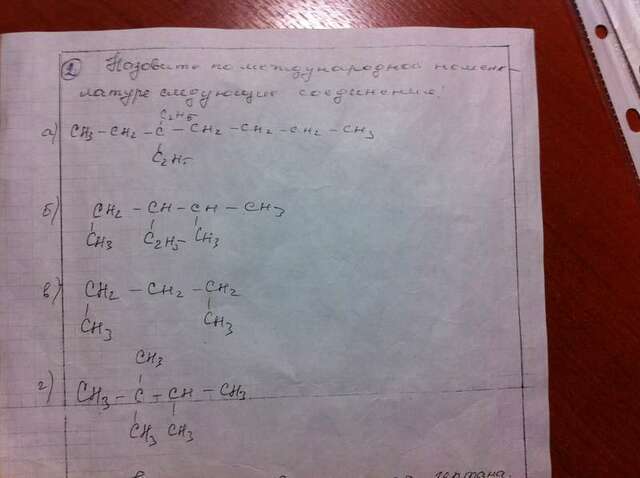 2 Назовите по международной номен-
клатуре следующие соединения:
C2H5
а) CH3 - CH2 - C - CH2 - CH2 - CH2 - CH3
C2H5
б) CH2 - CH - CH - CH3
CH3 C2H5 CH3
в) CH2 - CH2 - CH2
CH3 CH3
CH3
г) CH3 - C - CH - CH3
CH3 CH3
гептана.